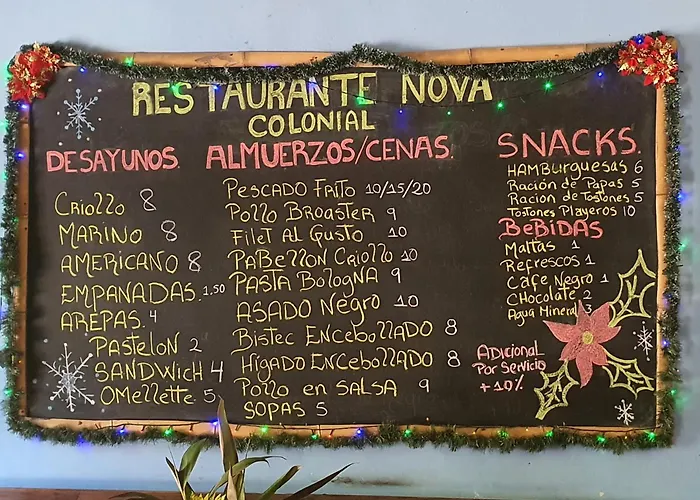 RESTAURANTE NOVA
COLONIAL
DESAYUNOS.
Criollo 8
MARINO 8
AMERICANO 8
EMPANADAS. 1,50
AREPAS. 4
PASTELON 2
SANDWICH 4
OMellette 5
ALMUERZOS/CENAS.
PESCADO FRITO 10/15/20
POLLO BROASTER 9
FILET AL GUSTO 10
PABELLON CRIOLLO 10
PASTA BOLOGNA 9
ASADO NEGRO 10
BISTEC ENCEBOLLADO 8
HÍGADO ENCEBOLLADO 8
POLLO EN SALSA 9
SOPAS 5
SNACKS.
HAMBURGUESAS 6
RACIÓN DE PAPAS 5
RACION DE TOSTONES 5
TOSTONES PLAYEROS 10
BEBIDAS
MALTAS 1
REFRESCOS 1
CAFE NEGRO 1
CHOCOLATE 2
AGUA MINERAL 3
ADICIONAL
POR SERVICIO
+10%